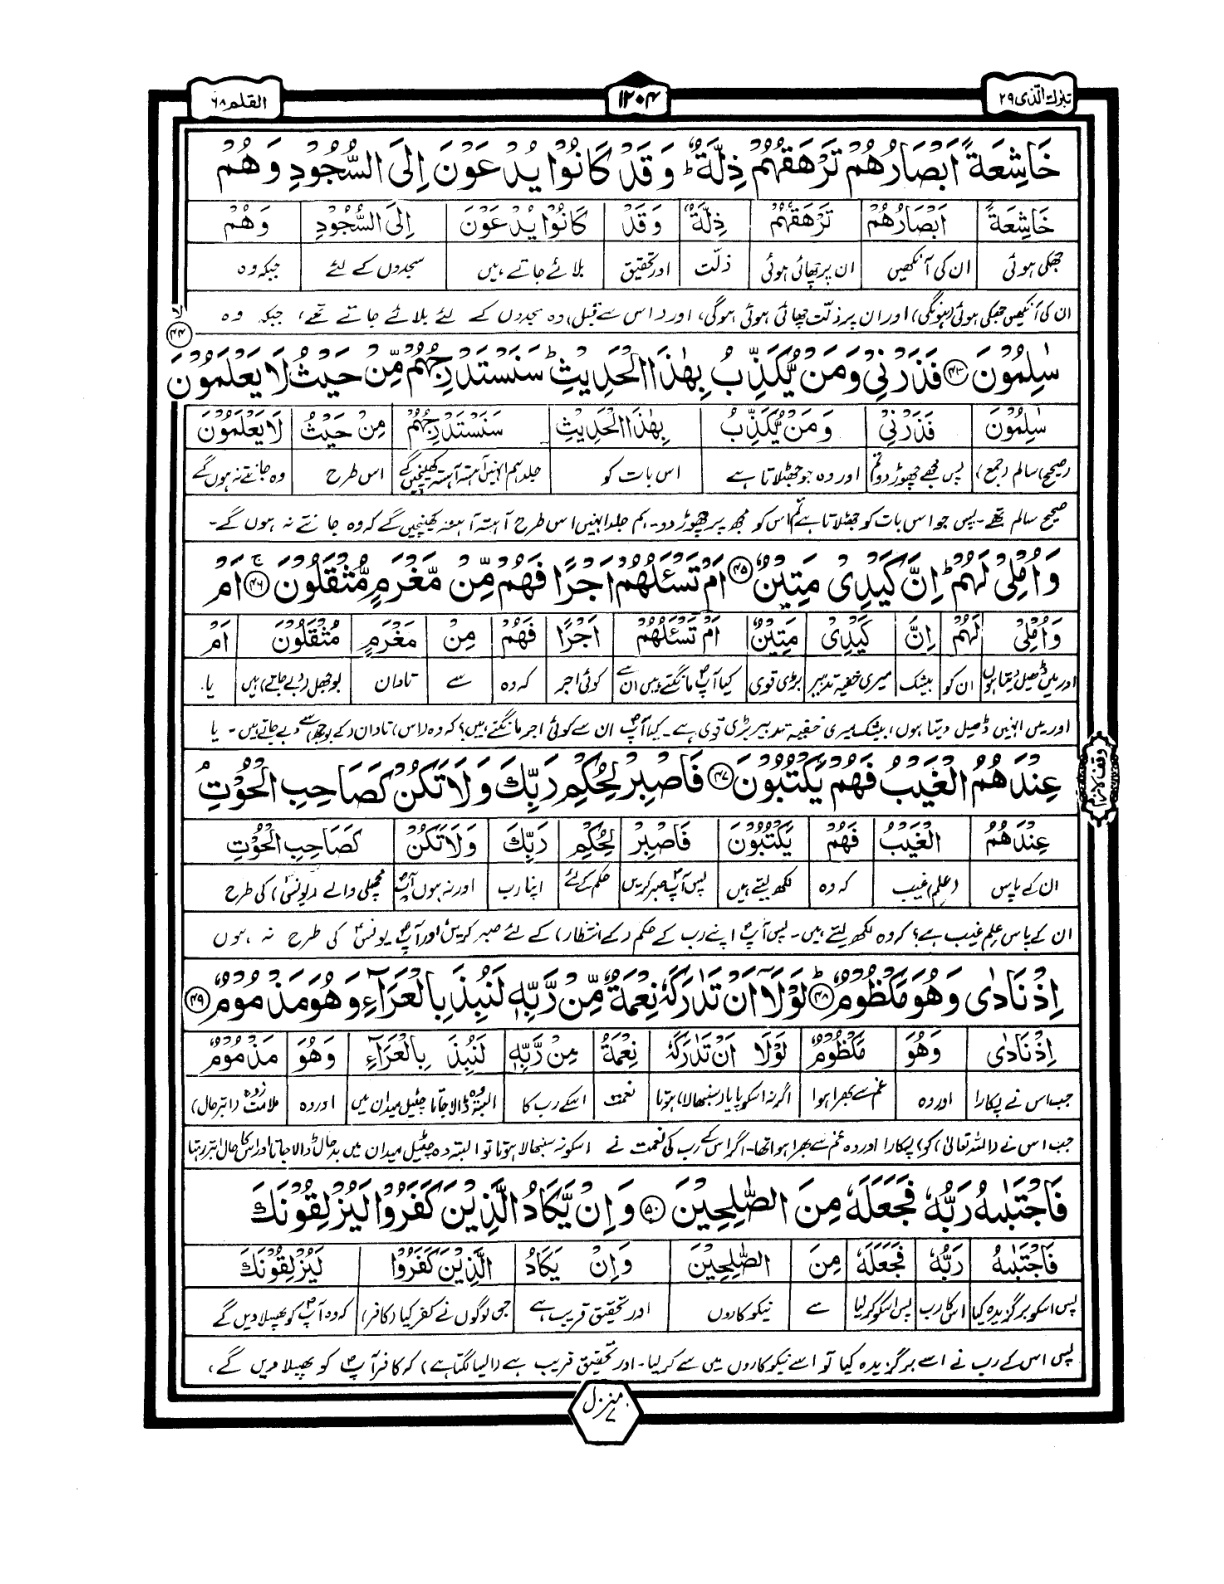 تبٰرك الّذی ۲۹
۱۲۰۴
القلم ۶۸
خَاشِعَةً اَبْصَارُهُمْ تَرْهَقُهُمْ ذِلَّةٌ ؕ وَقَدْ كَانُوْا يُدْعَوْنَ اِلَى السُّجُوْدِ وَهُمْ
خَاشِعَةً اَبْصَارُهُمْ تَرْهَقُهُمْ ذِلَّةٌ وَقَدْ كَانُوْا يُدْعَوْنَ اِلَى السُّجُوْدِ وَهُمْ
جھکی ہوئی ان کی آنکھیں ان پر چھائی ہوئی ذلّت اور تحقیق بلائے جاتے ہیں سجدوں کے لئے جبکہ وہ
ان کی آنکھیں جھکی ہوئی (ہونگی) اور ان پر ذلّت چھائی ہوئی ہوگی، اور (اس سے قبل) وہ سجدوں کے لئے بلائے جاتے تھے، جبکہ وہ
لا ۴۴
سٰلِمُوْنَ ۴۳ فَذَرْنِيْ وَمَنْ يُّكَذِّبُ بِهٰذَا الْحَدِيْثِ ؕ سَنَسْتَدْرِجُهُمْ مِّنْ حَيْثُ لَا يَعْلَمُوْنَ
سٰلِمُوْنَ فَذَرْنِيْ وَمَنْ يُّكَذِّبُ بِهٰذَا الْحَدِيْثِ سَنَسْتَدْرِجُهُمْ مِنْ حَيْثُ لَا يَعْلَمُوْنَ
(صحیح) سالم (جمع) پس مجھے چھوڑ دو تم اور وہ جو جھٹلاتا ہے اس بات کو جلد ہم انہیں آہستہ آہستہ کھینچیں گے اس طرح وہ جانتے نہ ہوں گے
صحیح سالم تھے۔ پس جو اس بات کو جھٹلاتا ہے تم اس کو مجھ پر چھوڑ دو۔ ہم جلد انہیں اس طرح آہستہ آہستہ کھینچیں گے کہ وہ جانتے نہ ہوں گے۔
وَاُمْلِيْ لَهُمْ ؕ اِنَّ كَيْدِيْ مَتِيْنٌ ۴۵ اَمْ تَسْئَلُهُمْ اَجْرًا فَهُمْ مِّنْ مَّغْرَمٍ مُّثْقَلُوْنَ ۴۶ ج اَمْ
وَاُمْلِيْ لَهُمْ اِنَّ كَيْدِيْ مَتِيْنٌ اَمْ تَسْئَلُهُمْ اَجْرًا فَهُمْ مِنْ مَغْرَمٍ مُثْقَلُوْنَ اَمْ
اور میں ڈھیل دیتا ہوں ان کو بیشک میری خفیہ تدبیر بڑی قوی کیا آپؐ مانگتے ہیں ان سے کوئی اجر کہ وہ سے تاوان بوجھل (دبے جاتے) ہیں یا
اور میں انہیں ڈھیل دیتا ہوں، بیشک میری خفیہ تدبیر بڑی قوی ہے۔ کیا آپؐ ان سے کوئی اجر مانگتے ہیں؟ کہ وہ (اس) تاوان (کے بوجھ) سے دبے جاتے ہیں۔ یا
وقف لازم
عِنْدَهُمُ الْغَيْبُ فَهُمْ يَكْتُبُوْنَ ۴۷ فَاصْبِرْ لِحُكْمِ رَبِّكَ وَلَا تَكُنْ كَصَاحِبِ الْحُوْتِ م
عِنْدَهُمُ الْغَيْبُ فَهُمْ يَكْتُبُوْنَ فَاصْبِرْ لِحُكْمِ رَبِّكَ وَلَا تَكُنْ كَصَاحِبِ الْحُوْتِ
ان کے پاس (علم) غیب کہ وہ لکھ لیتے ہیں پس آپؐ صبر کریں حکم کے لئے اپنا رب اور نہ ہوں آپؐ مچھلی والے (یونسؑ) کی طرح
ان کے پاس علم غیب ہے؟ کہ وہ لکھ لیتے ہیں۔ پس آپؐ اپنے رب کے حکم (کے انتظار) کے لئے صبر کریں اور آپؐ یونسؑ کی طرح نہ ہوں
اِذْ نَادٰى وَهُوَ مَكْظُوْمٌ ۴۸ ؕ لَوْلَآ اَنْ تَدٰرَكَهٗ نِعْمَةٌ مِّنْ رَّبِّهٖ لَنُبِذَ بِالْعَرَآءِ وَهُوَ مَذْمُوْمٌ ۴۹
اِذْ نَادٰى وَهُوَ مَكْظُوْمٌ لَوْلَا اَنْ تَدٰرَكَهٗ نِعْمَةٌ مِنْ رَّبِّهٖ لَنُبِذَ بِالْعَرَآءِ وَهُوَ مَذْمُوْمٌ
جب اس نے پکارا اور وہ غم سے بھرا ہوا اگر نہ اسکو پا یا (سنبھالا) ہوتا نعمت اسکے رب کا البتہ وہ ڈالا جاتا چٹیل میدان میں اور وہ ملامت زدہ (ابتر حال)
جب اس نے (اللہ تعالیٰ) کو پکارا اور وہ غم سے بھرا ہوا تھا۔ اگر اس کے رب کی نعمت نے اسکو نہ سنبھالا ہوتا تو البتہ وہ چٹیل میدان میں بدحال ڈالا جاتا اور اس کا حال ابتر رہتا
فَاجْتَبٰىهُ رَبُّهٗ فَجَعَلَهٗ مِنَ الصّٰلِحِيْنَ ۵۰ وَاِنْ يَّكَادُ الَّذِيْنَ كَفَرُوْا لَيُزْلِقُوْنَكَ
فَاجْتَبٰىهُ رَبُّهٗ فَجَعَلَهٗ مِنَ الصّٰلِحِيْنَ وَاِنْ يَكَادُ الَّذِيْنَ كَفَرُوْا لَيُزْلِقُوْنَكَ
پس اسکو برگزیدہ کیا اسکا رب پس اسکو کر لیا سے نیکو کاروں اور تحقیق قریب ہے جن لوگوں نے کفر کیا (کافر) کہ وہ آپؐ کو پھسلا دیں گے
پس اس کے رب نے اسے برگزیدہ کیا تو اسے نیکو کاروں میں سے کر لیا۔ اور تحقیق قریب ہے (ایسا لگتا ہے) کہ کافر آپؐ کو پھسلا دیں گے،
منزل ۷